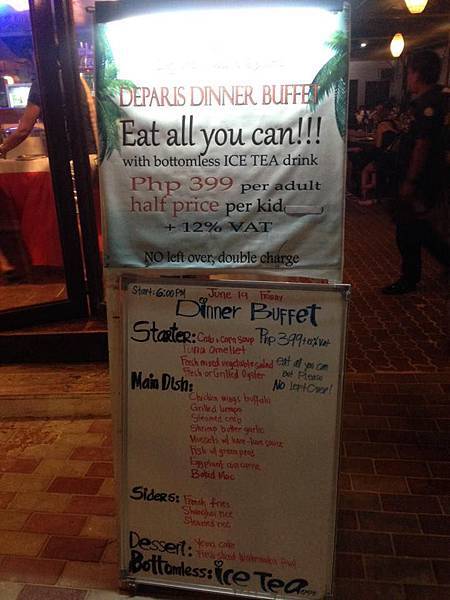 DEPARIS DINNER BUFFET
Eat all you can!!!
with bottomless ICE TEA drink
Php 399 per adult
half price per kid
+ 12% VAT
NO left over, double charge
Start: 6:00 PM June 19 Friday
Dinner Buffet
Starter: Crab & corn soup
Php 399+12% Vat
Tuna omellet
Fresh mixed vegetable salad
Fresh or Grilled Oyster
eat all you can
but Please
No Left Over!
Main Dish:
Chicken wings buffalo
Grilled
Steamed crab
Shrimp butter garlic
Mussels w/ sauce
Fish w/ green peas
Eggplant
Baked Mac
Siders:
French fries
Shanghai rice
Steamed rice
Dessert: Yema cake
Fresh sliced Watermelon
Bottomless: ice Tea